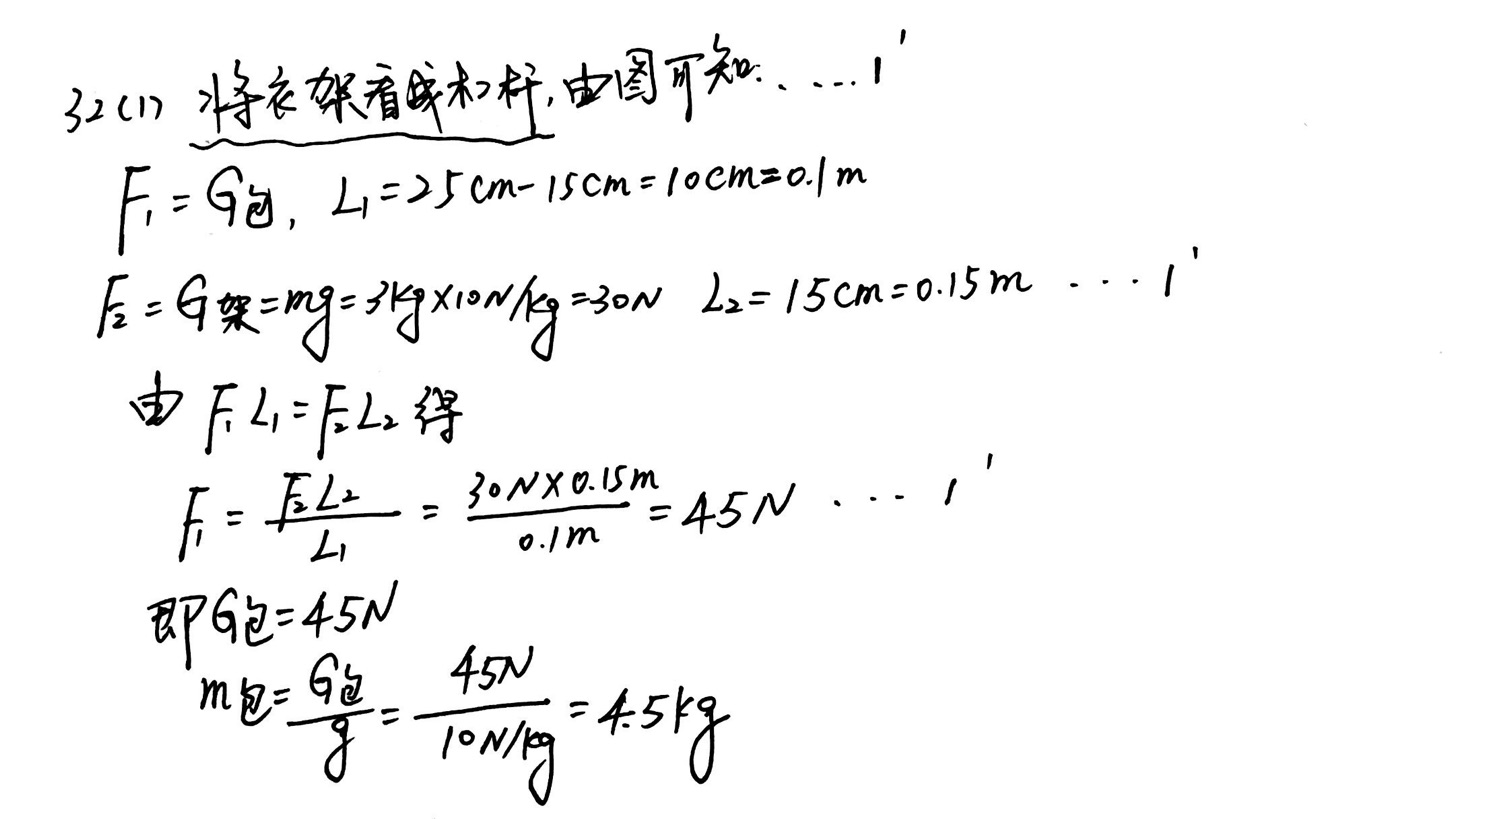 32(1) 将衣架看成杠杆,由图可知:.....1'
F₁=G包, L₁=25cm-15cm=10cm=0.1m
F₂=G架=mg=3kg×10N/kg=30N L₂=15cm=0.15m ....1'
由F₁L₁=F₂L₂得
F₁=F₂L₂/L₁=30N×0.15m/0.1m=45N ....1'
即G包=45N
m包=G包/g=45N/10N/kg=4.5kg